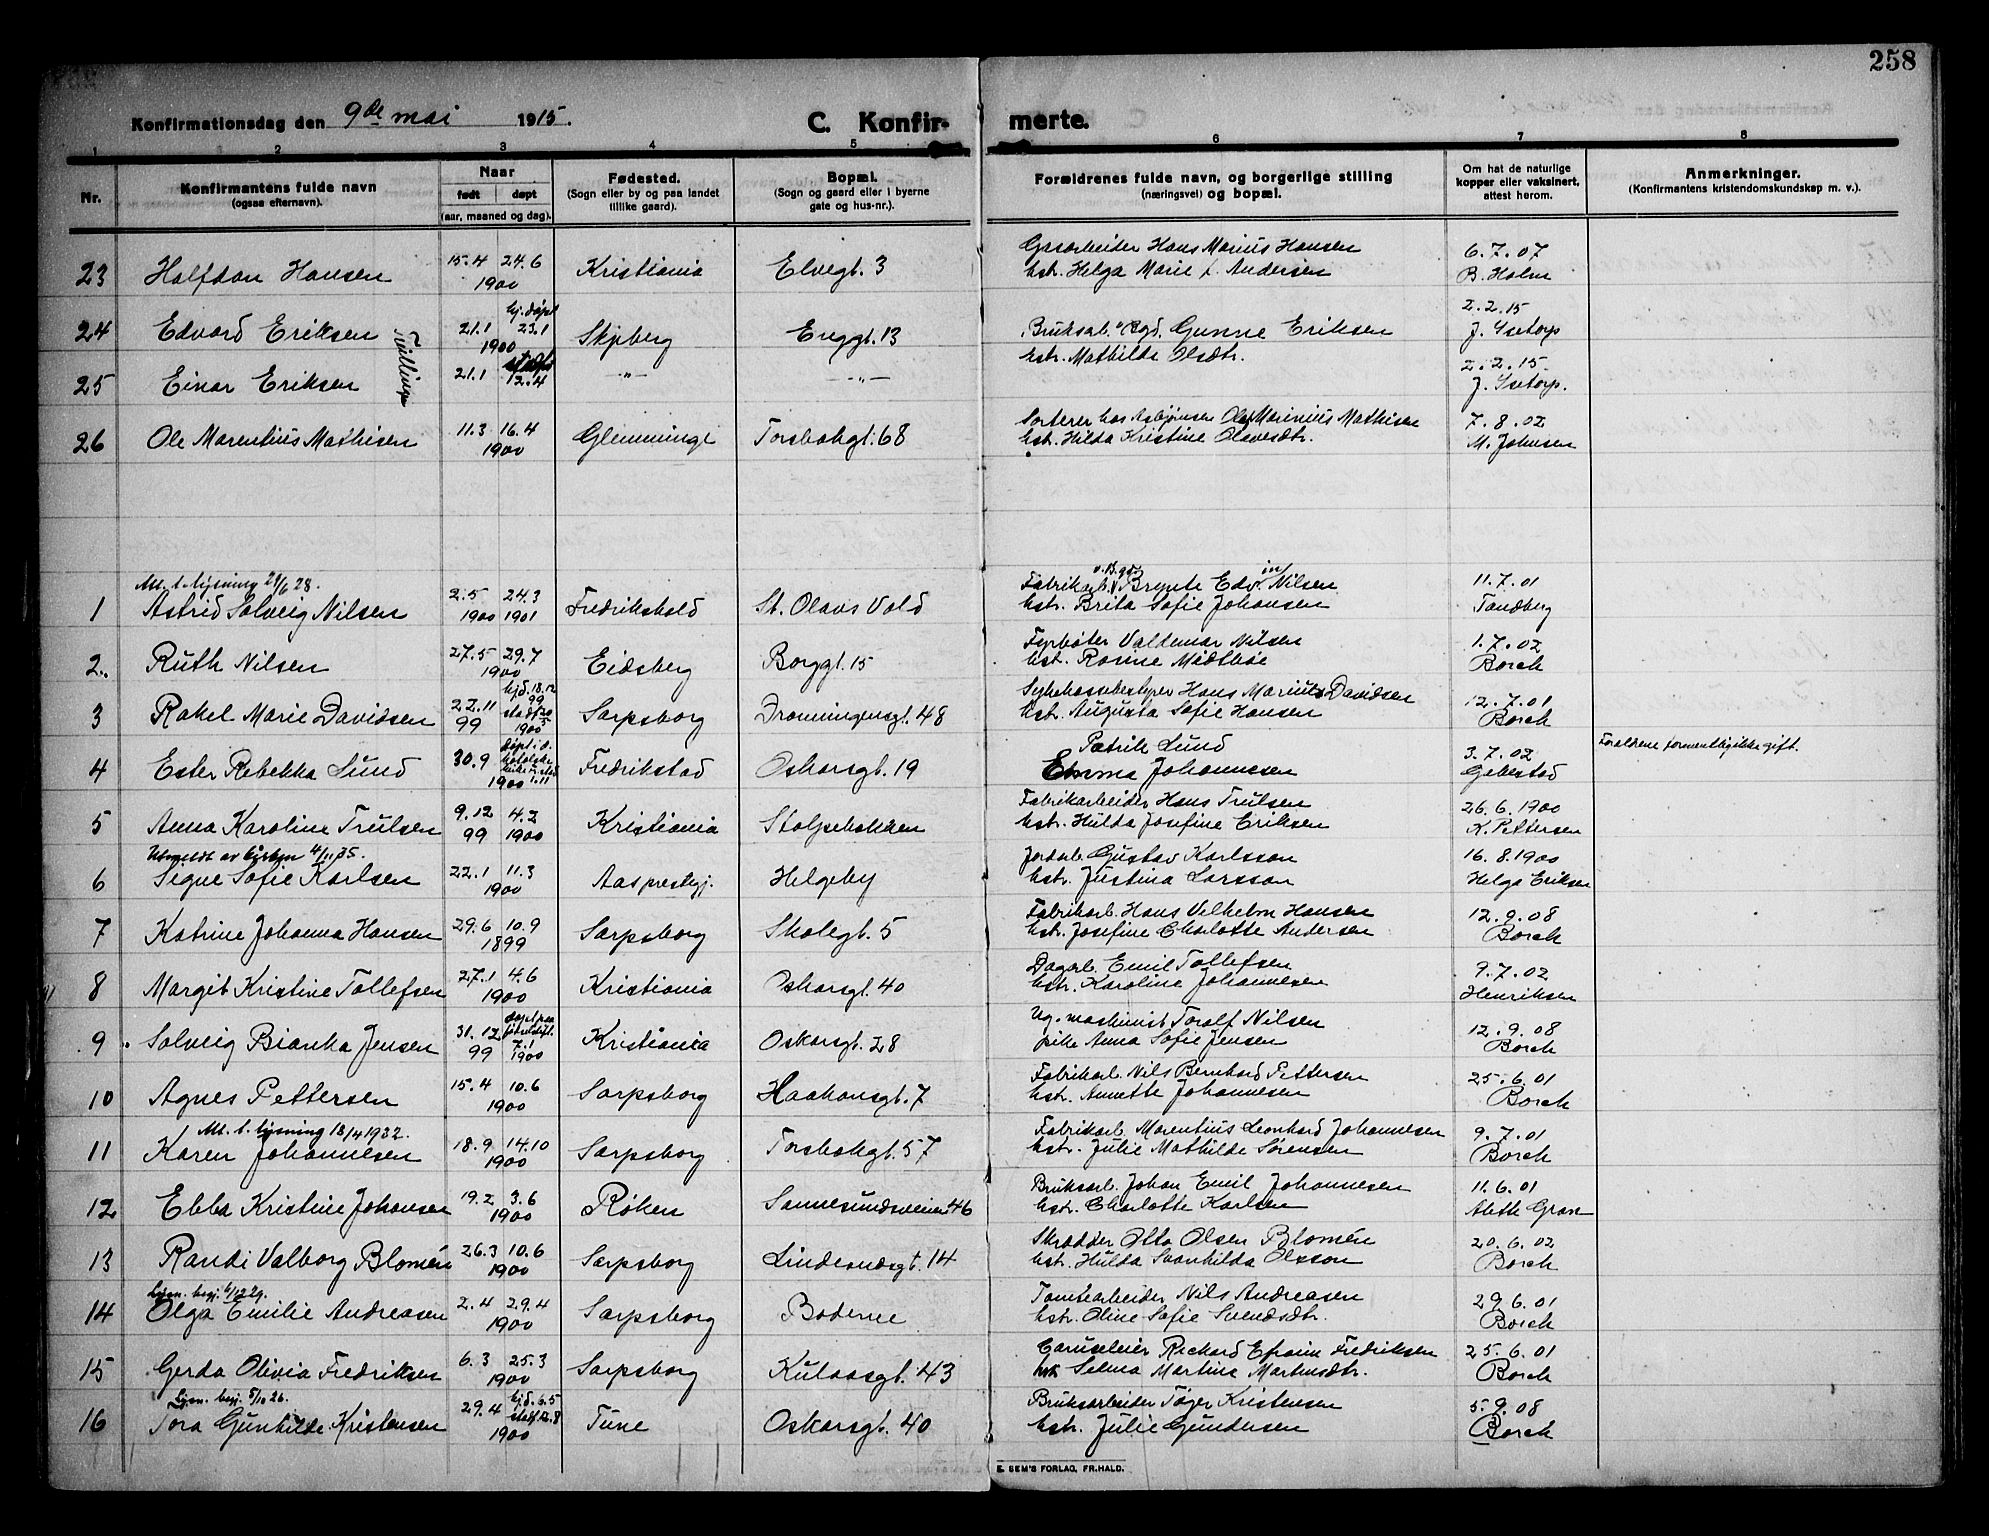 258
Konfirmationsdag den 9de mai 1915.
C. Konfirmerte.
1 2 3 4 5 6 7 8
Nr.
Konfirmantens fulde navn
(ogsaa efternavn).
Naar
født døpt
(aar, maaned og dag).
Fødested.
(Sogn eller by og paa landet
tillike gaard).
Bopæl.
(Sogn og gaard eller i byerne
gate og hus-nr.).
Forældrenes fulde navn, og borgerlige stilling
(næringsvei) og bopæl.
Om hat de naturlige
kopper eller vaksinert,
attest herom.
Anmerkninger.
(Konfirmantens kristendomskundskap m. v.).
23 Halfdan Hansen 15.4 24.6 1900 Kristiania Elvegt. 3 Grsarbeider Hans Marius Hansen
hstr. Helga Marie f. Andersen 6.7.07 B. Holm
24 Edvard Eriksen Tvillinger 21.1 hj.døpt 23.1 1900 Skjeberg Enggt. 13 Bruksarb. Gunne Eriksen
hstr. Mathilde Olsdtr. 2.2.15 J. Ysetorp
25 Einar Eriksen 21.1 12.4 -"- -"- 2.2.15. J. Ysetorp.
26 Ole Marentius Mathisen 11.3 16.4 1900 Glemminge Torsbakgt. 68 Sorterer hos Asbjørnsen Ole Marinius Mathisen
hstr. Hilda Kristine Olavesdtr. 7.8.02 M. Johnsen
Att. t. lysning 29/6 28.
1 Astrid Solveig Nilsen 2.5 24.3 1900 1901 Fredrikshald St. Olavs Vold Fabrikarb. v. B. gd. Brynte Edvin Nilsen
hstr. Brita Sofie Johansen 11.7.01 Tandberg
2. Ruth Nilsen 27.5 29.7 1900 Eidsberg Borggt. 15 Fyrbøter Valdemar Nilsen
hstr. Rosine Midtbøe 1.7.02 Borch
3 Rakel Marie Davidsen 22.11 99 hjd. 18.12 99 stadf. 20 1900 Sarpsborg Dronningensgt. 48 Sykekassebestyrer Hans Marius Davidsen
hstr. Augusta Sofie Hansen 12.7.01 Borch
4 Ester Rebekka Lund 30.9 døpt i d. katolske kirke 1900 1.11 Fredrikstad Oskarsgt. 19 Patrik Lund
Emma Johannesen 3.7.02 Gebestad Forældrene formentlig ikke gift.
5 Anna Karoline Trulsen 9.12 99 4.2 1900 Kristiania Stolpebakken Fabrikarbeider Hans Trulsen
hstr. Hulda Josefine Eriksen 26.6.1900 K. Pettersen
Utmeldt av kirken 4/11 35.
6 Signe Sofie Karlsen 22.1 11.3 1900 Aas prestegj. Helgeby Jordarb. Gustav Karlsson
hstr. Justina Larsson 16.8.1900 Helga Eriksen
7 Katrine Johanna Hansen 29.6 10.9 1899 Sarpsborg Skolegt. 5 Fabrikarb. Hans Vilhelm Hansen
hstr. Josefine Charlotte Andersen 12.9.08 Borch
8 Margit Kristine Tollefsen 27.1 4.6 1900 Kristiania Oskarsgt. 40 Dagarb. Emil Tollefsen
hstr. Karoline Johannesen 9.7.02 Henriksen
9 Solveig Bianka Jensen 31.12 99 døpt paa fødselsst. 7.1 1900 Kristiania Oskarsgt. 28 Ug. maskinist Toralf Nilsen
pike Anna Sofie Jensen 12.9.08 Borch
10 Agnes Pettersen 15.4 10.6 1900 Sarpsborg Haakonsgt. 7 Fabrikarb. Nils Bernhard Pettersen
hstr. Annette Johannesen 25.6.01 Borch
Att. t. lysning 18/4 1932.
11 Karen Johannesen 18.9 14.10 1900 Sarpsborg Torsbakgt. 57 Fabrikarb. Marentius Leonhard Johannesen
hstr. Julie Mathilde Sørensen 9.7.01 Borch
12 Ebba Kristine Johansen 19.2 3.6 1900 Røken Sannesundsveien 46 Bruksarb. Johan Emil Johannesen
hstr. Charlotte Karlsen 11.6.01 Aleth Gran
13 Randi Valborg Blomén 26.3 10.6 1900 Sarpsborg Lindesnæsgt. 14 Skrædder Otto Olsen Blomén
hstr. Hulda Svanhilda Olsson 20.6.02 Borch
Lysn. begj. 6/12 29.
14 Olga Emilie Andreasen 2.4 29.4 1900 Sarpsborg Boderne Tomtearbeider Nils Andreasen
hstr. Oline Sofie Svendsdtr. 29.6.01 Borch
15 Gerda Olivia Fredriksen 6.3 25.3 1900 Sarpsborg Kulaasgt. 43 Caruseleier Richard Efraim Fredriksen
Selma Martine Martinsdtr. 25.6.01 Borch
Lysn. begj. 5/10 26.
16 Tora Gunhilde Kristensen 29.4 hjd. 6.5 stadf. 12.8 1900 Tune Oskarsgt. 40 Bruksarbeider Tøger Kristensen
hstr. Julie Gundersen 5.9.08 Borch
E. SEM'S FORLAG, FR.HALD.